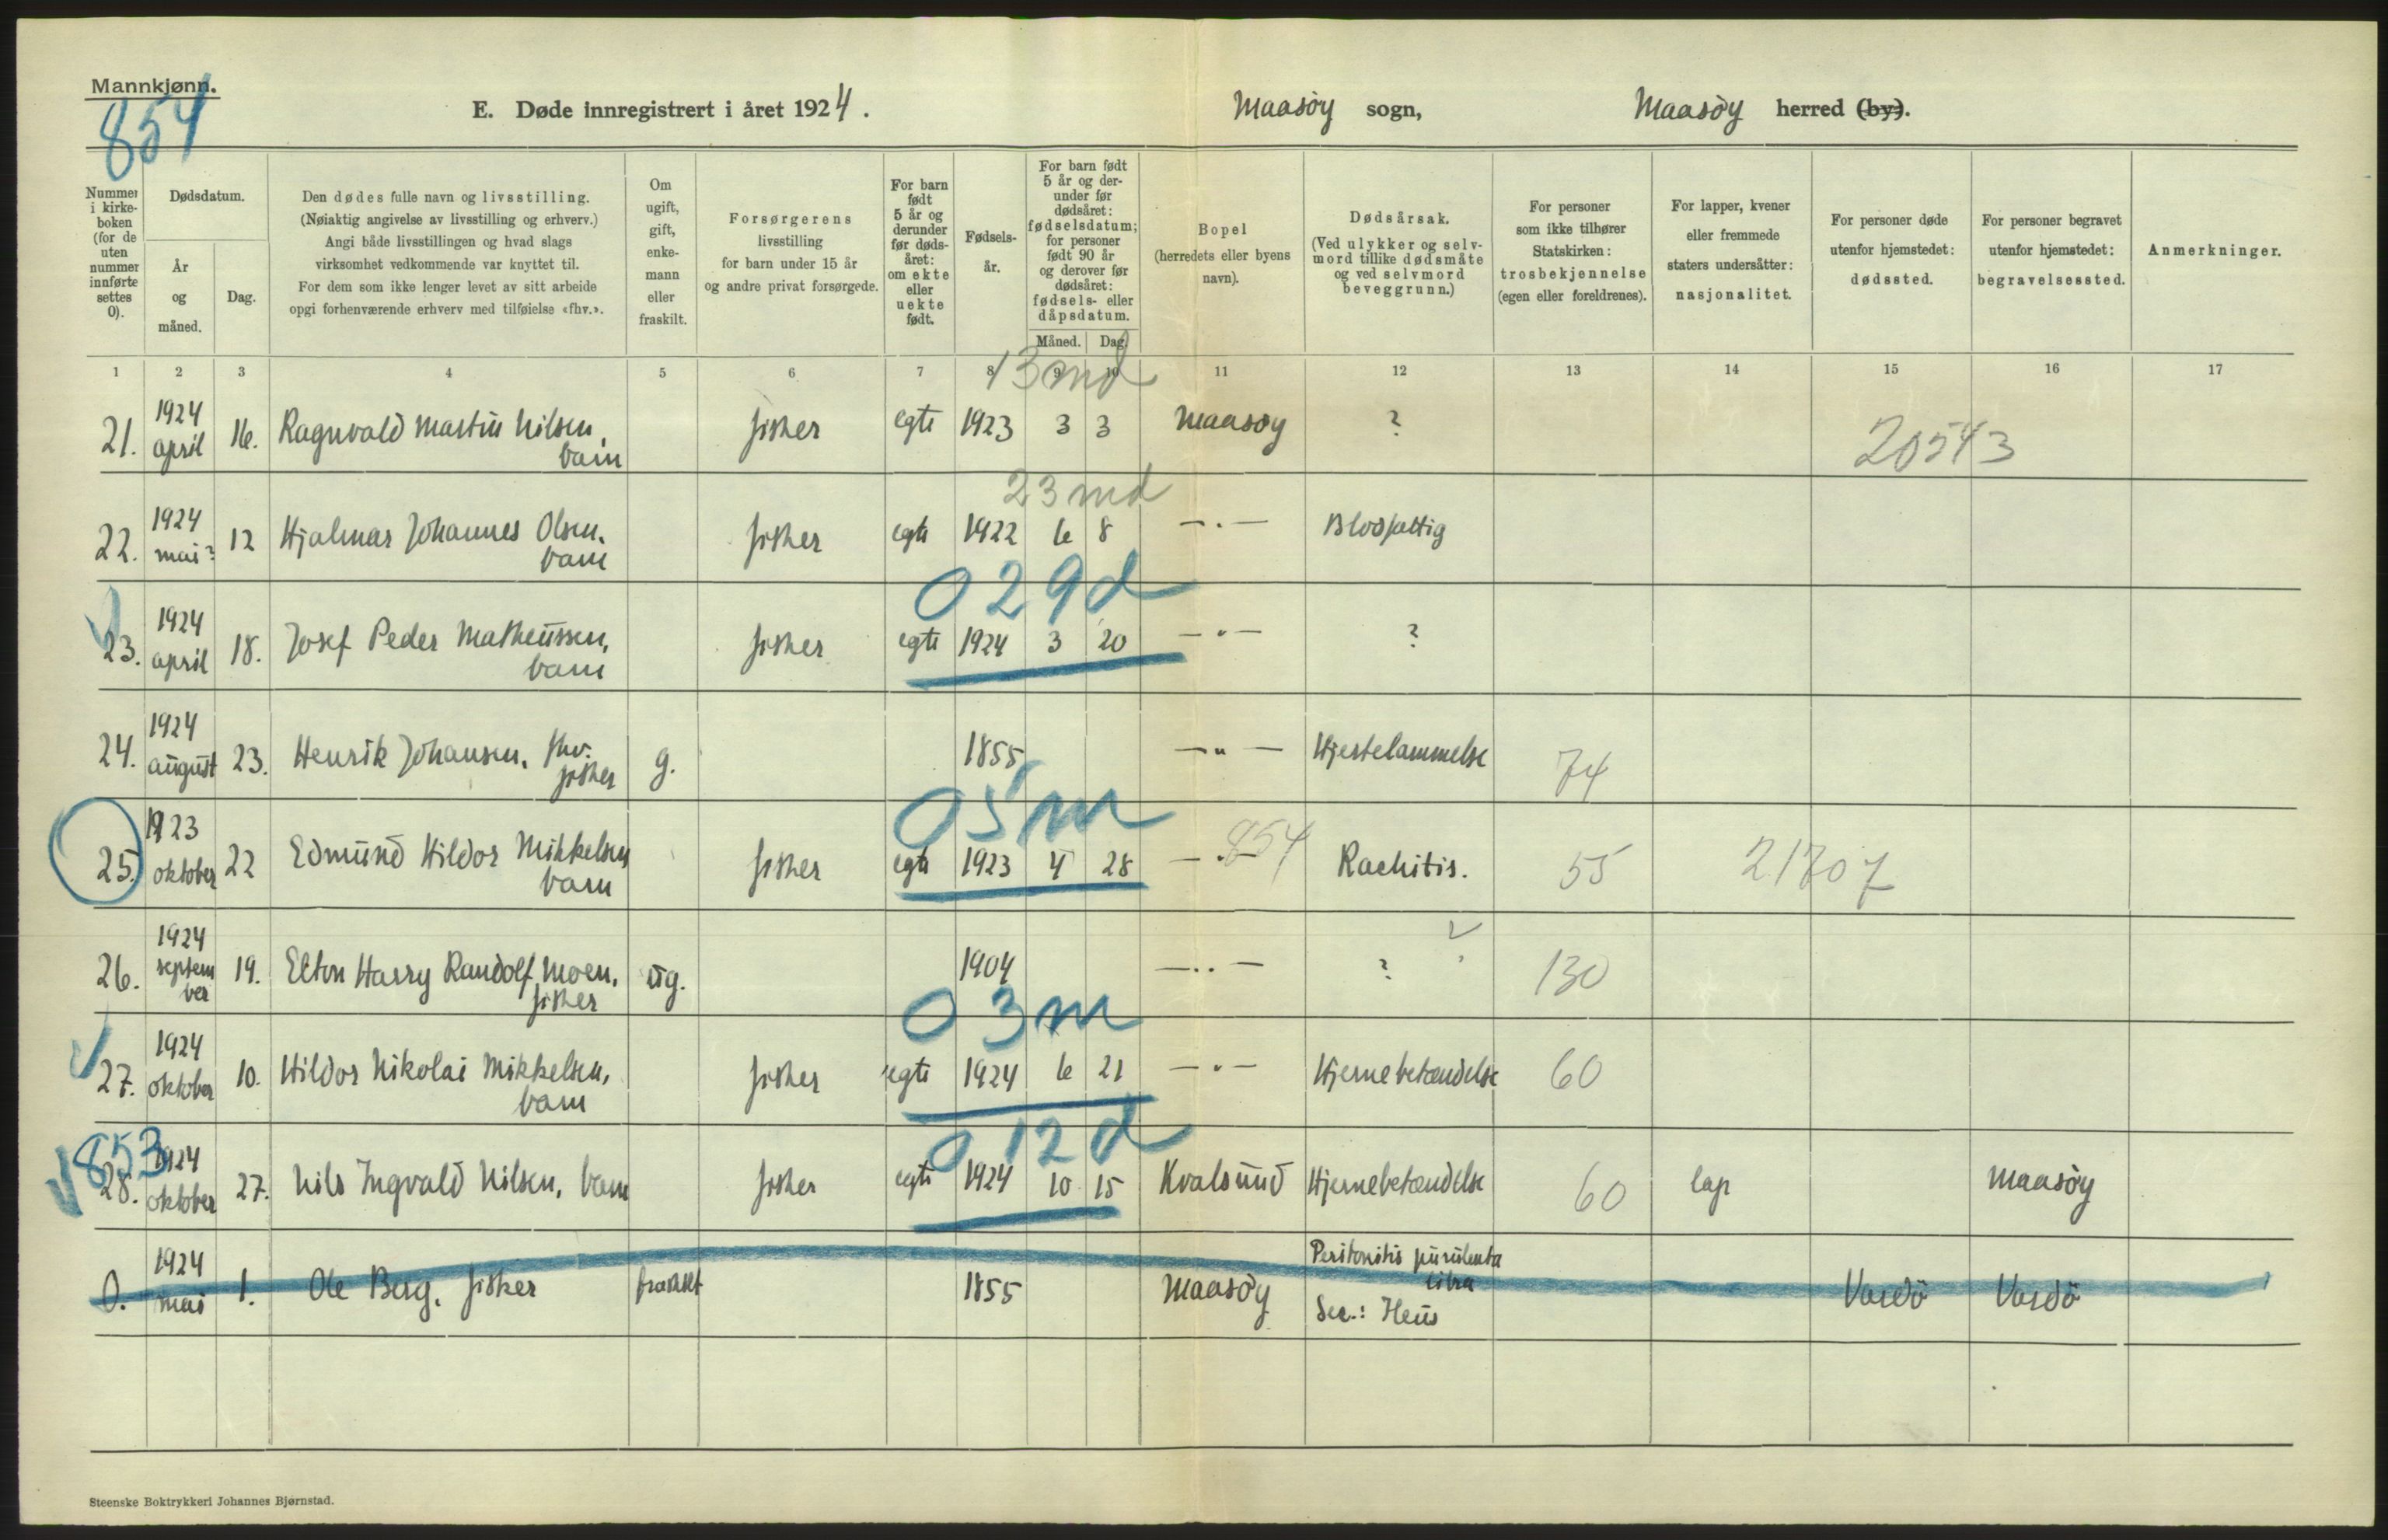 Mannkjønn.
854
E. Døde innregistrert i året 1924.
Maasöy sogn,
Maasöy herred (by).
Nummer i kirke-boken (for de uten nummer innførte settes 0).
Dødsdatum.
År og måned.
Dag.
Den dødes fulle navn og livsstilling.
(Nøiaktig angivelse av livsstilling og erhverv.)
Angi både livsstillingen og hvad slags
virksomhet vedkommende var knyttet til.
For dem som ikke lenger levet av sitt arbeide
opgi forhenværende erhverv med tilføielse «fhv.».
Om ugift, gift, enke-mann eller fraskilt.
Forsørgerens livsstilling for barn under 15 år og andre privat forsørgede.
For barn født 5 år og derunder før døds-året: om ekte eller uekte født.
Fødsels-år.
For barn født 5 år og der-under før dødsåret: fødselsdatum; for personer født 90 år og derover før dødsåret: fødsels- eller dåpsdatum.
Måned. Dag.
Bopel (herredets eller byens navn).
Dødsårsak.
(Ved ulykker og selv-mord tillike dødsmåte og ved selvmord beveggrunn.)
For personer som ikke tilhører Statskirken: trosbekjennelse (egen eller foreldrenes).
For lapper, kvener eller fremmede staters undersåtter: nasjonalitet.
For personer døde utenfor hjemstedet: dødssted.
For personer begravet utenfor hjemstedet: begravelsessted.
Anmerkninger.
1 2 3 4 5 6 7 8 9 10 11 12 13 14 15 16 17
13 md
21. 1924 april 16. Ragnvald Martin Nilsen, barn fisker egte 1923 3 3 Maasöy ? 20543
23 md
22. 1924 mai? 12 Hjalmar Johannes Olsen, barn fisker egte 1922 6 8 —.— Blodfattig
0 29d
23. 1924 april 18. Josef Peder Matheussen, barn fisker egte 1924 3 20 —"— ?
24. 1924 august 23. Henrik Johansen, fhv. fisker g. 1855 —"— Hjertelammelse 74
0 5m
25. 1923 oktober 22 Edmund Hildor Mikkelsen barn fisker egte 1923 4 28 —.— 854 Rachitis. 55 21707
26. 1924 septem ber 19. Elton Harry Randolf Moen, fisker ug. 1904 —..— ? 130
0 3m
27. 1924 oktober 10. Hildor Nikolai Mikkelsen, barn fisker egte 1924 6 21 —"— Hjernebetændelse 60
853
0 12d
28. 1924 oktober 27. Nils Ingvald Nilsen, barn fisker egte 1924 10 15 Kvalsund Hjernebetændelse 60 lap Maasöy
0. 1924 mai 1. Ole Berg, fisker fraskilt 1855 Maasöy Peritonitis purulenta Sec.: Ileus Vardö Vardö
Steenske Boktrykkeri Johannes Bjørnstad.